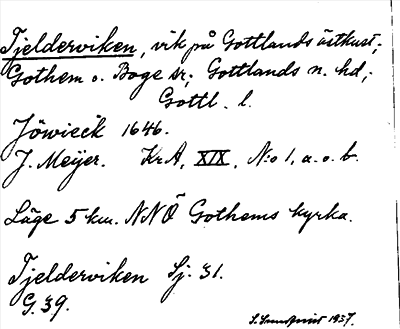 Tjelderviken, vik på Gottlands östkust;
Gothem o. Boge sr; Gottlands n. hd,;
Gottl. l.
Jöwieck 1646.
J. Meÿer. KrA, XIX, N:o 1, a. o. b.
Läge 5 km. NNÖ Gothems kyrka.
Tjelderviken Sj. 31.
G. 39.
S. Sundqvist 1937.